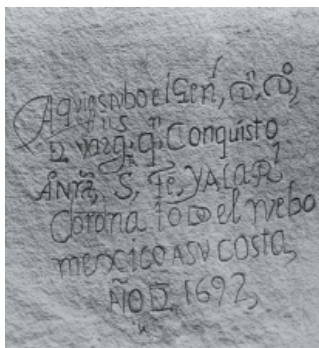 Aqui estubo el Gen, Dn, Do,
D. Vargs, qn, Conquisto
Anra, S, Fe, Y A la Rl
Corona todo el nvebo
mexico ASV COSTA,
AÑO D 1692,